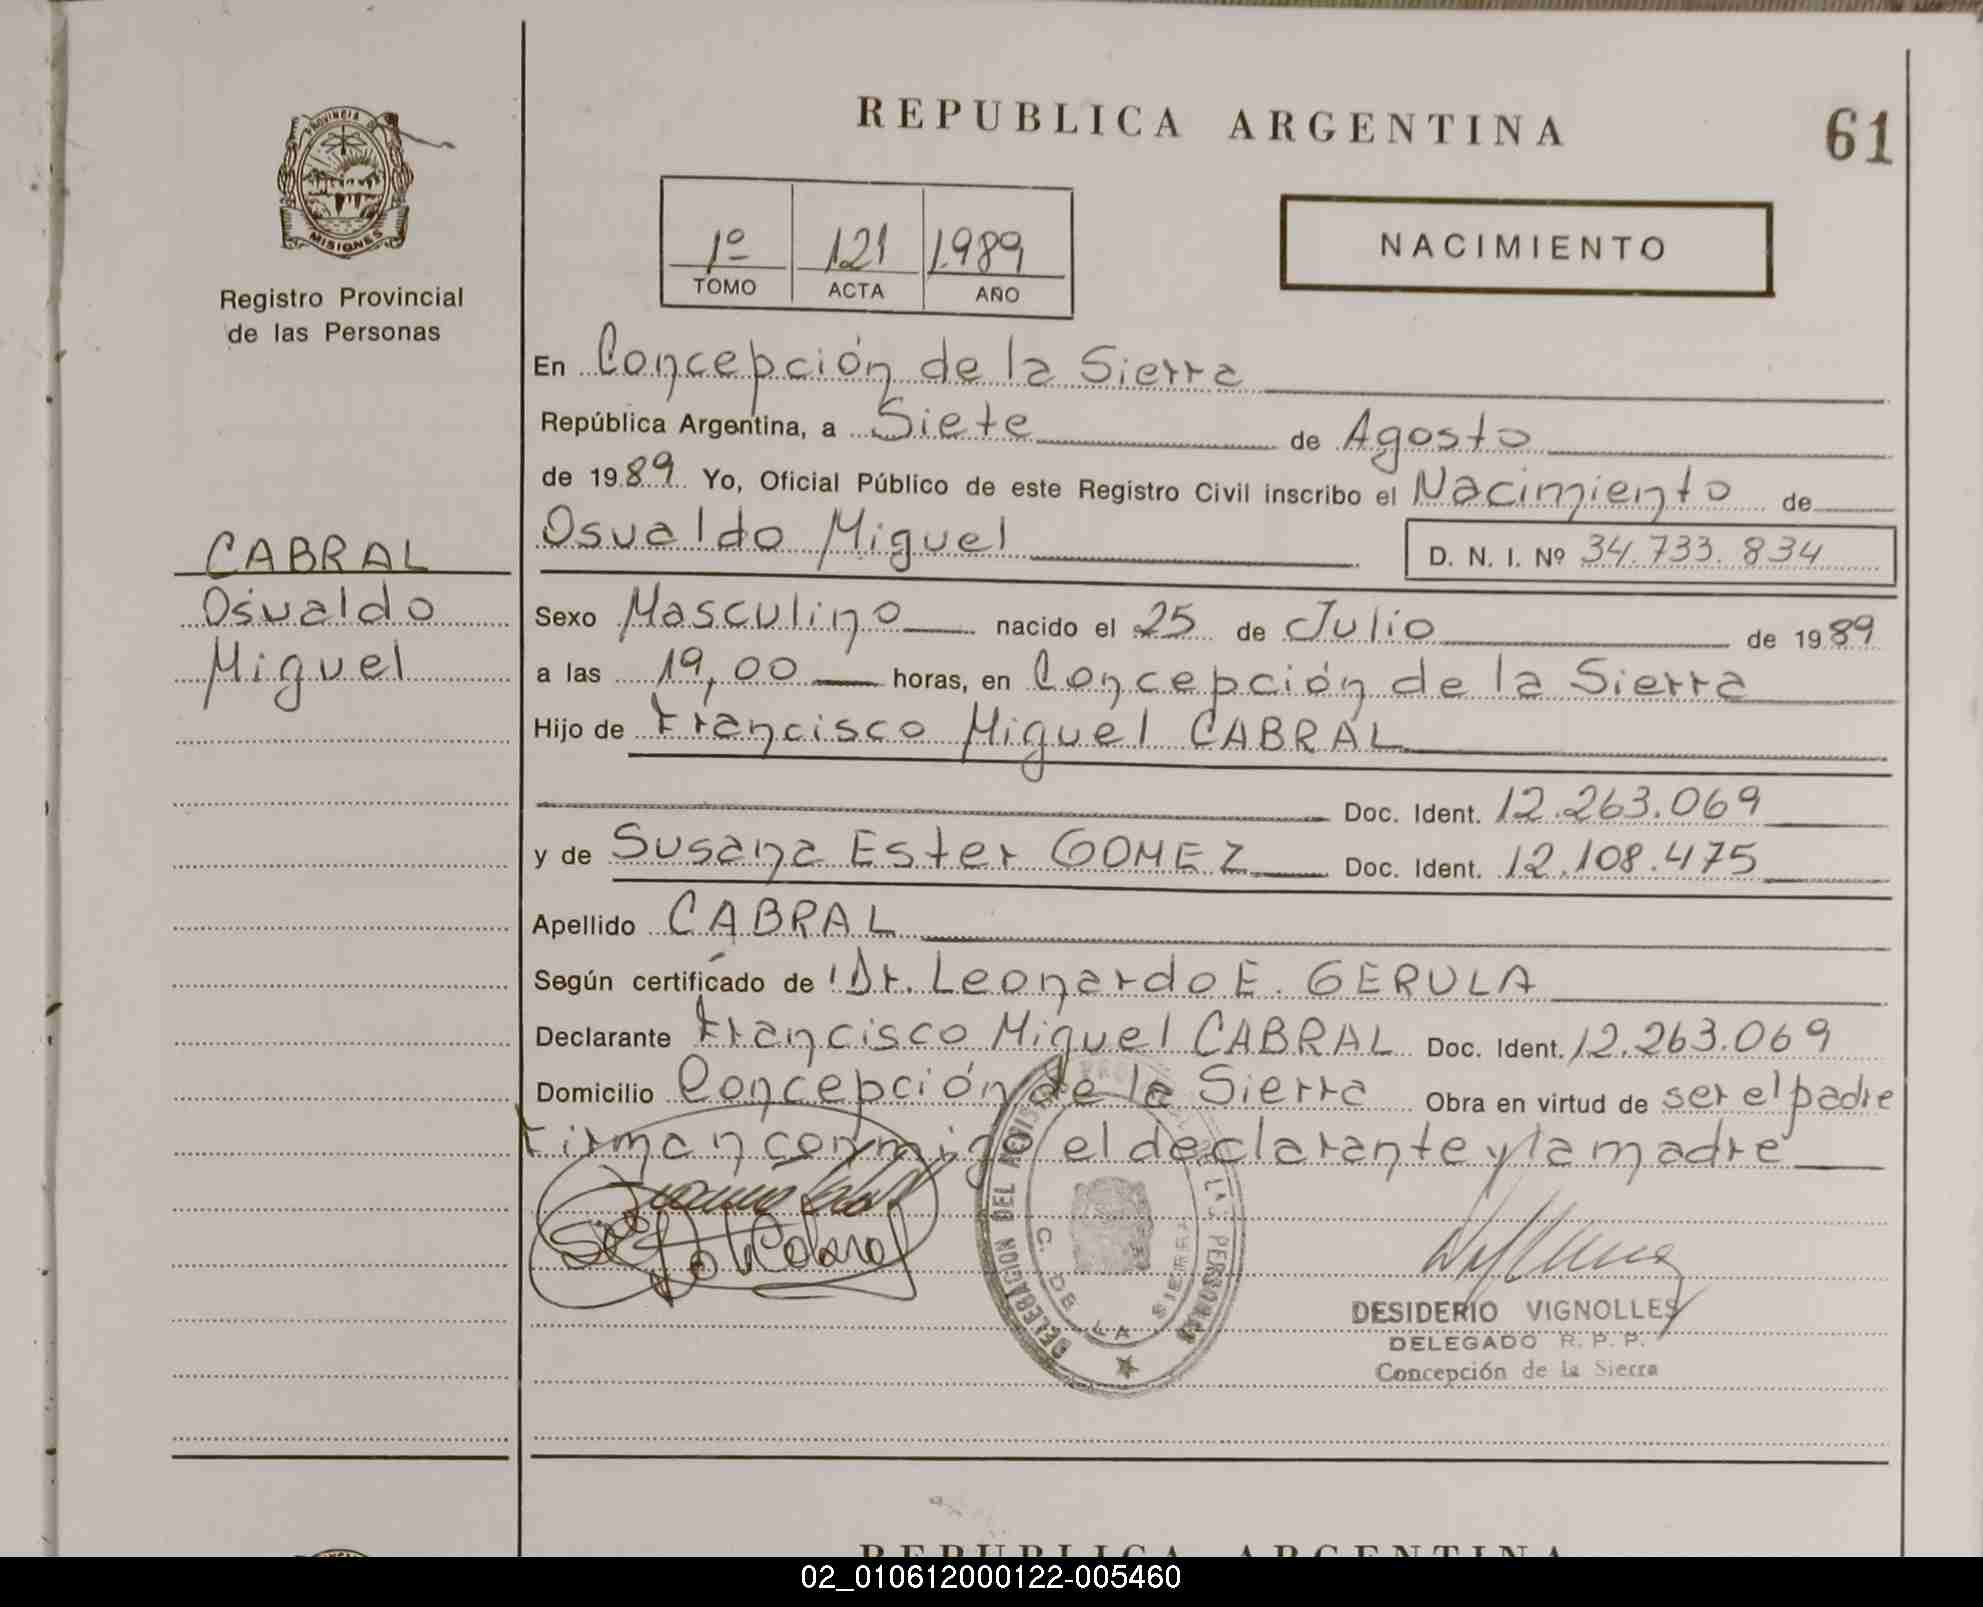 REPUBLICA ARGENTINA
61
PROVINCIA DE
MISIONES
Registro Provincial
de las Personas
1º 121 1989
TOMO ACTA AÑO
NACIMIENTO
En Concepción de la Sierra
República Argentina, a Siete de Agosto
de 1989 Yo, Oficial Público de este Registro Civil inscribo el Nacimiento de
Osvaldo Miguel
D. N. I. Nº 34.733.834
CABRAL
Osvaldo
Miguel
Sexo Masculino nacido el 25 de Julio de 1989
a las 19,00 horas, en Concepción de la Sierra
Hijo de Francisco Miguel CABRAL
Doc. Ident. 12.263.069
y de Susana Ester GOMEZ Doc. Ident. 12.108.475
Apellido CABRAL
Según certificado de Dr. Leonardo E. GERULA
Declarante Francisco Miguel CABRAL Doc. Ident. 12.263.069
Domicilio Concepción de la Sierra Obra en virtud de ser el padre
Firman conmigo el declarante y la madre
C. DE LA SIERRA
DESIDERIO VIGNOLLES
DELEGADO R. P. P.
Concepción de la Sierra
REPUBLICA ARGENTINA
02_010612000122-005460